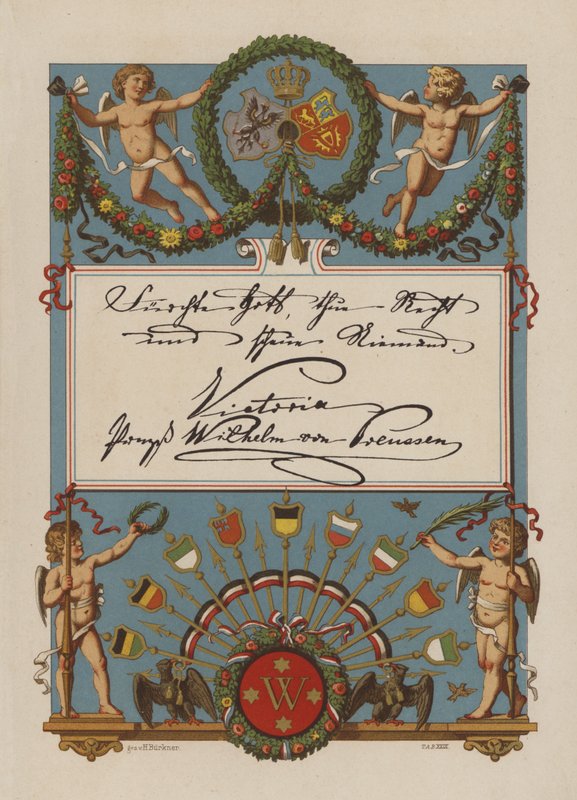 Fürchte Gott, thue Recht
und scheue Niemand.
Victoria
Prinzeß Wilhelm von Preussen
W
gez. v. H. Bürkner.
TAB. XXIX.